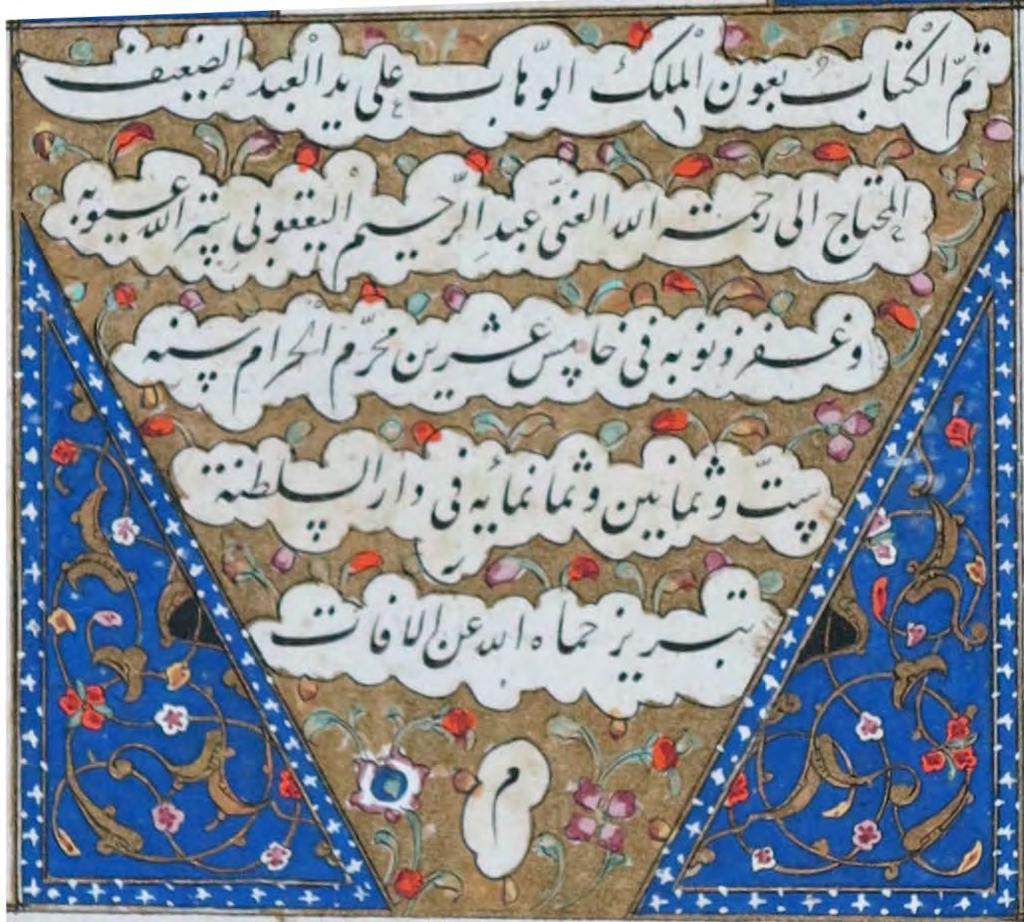 تمّ الكتاب بعون الملك الوهّاب على يد العبد الضعيف
المحتاج الى رحمة الله الغنىّ عبد الرّحيم اليعقوبى ستر الله عيوبه
و غفر ذنوبه فى خامس عشرين محرّم الحرام سنه
ستّ و ثمانين و ثمانمائه فى دار السلطنة
تبريز حماه الله عن الافات
م